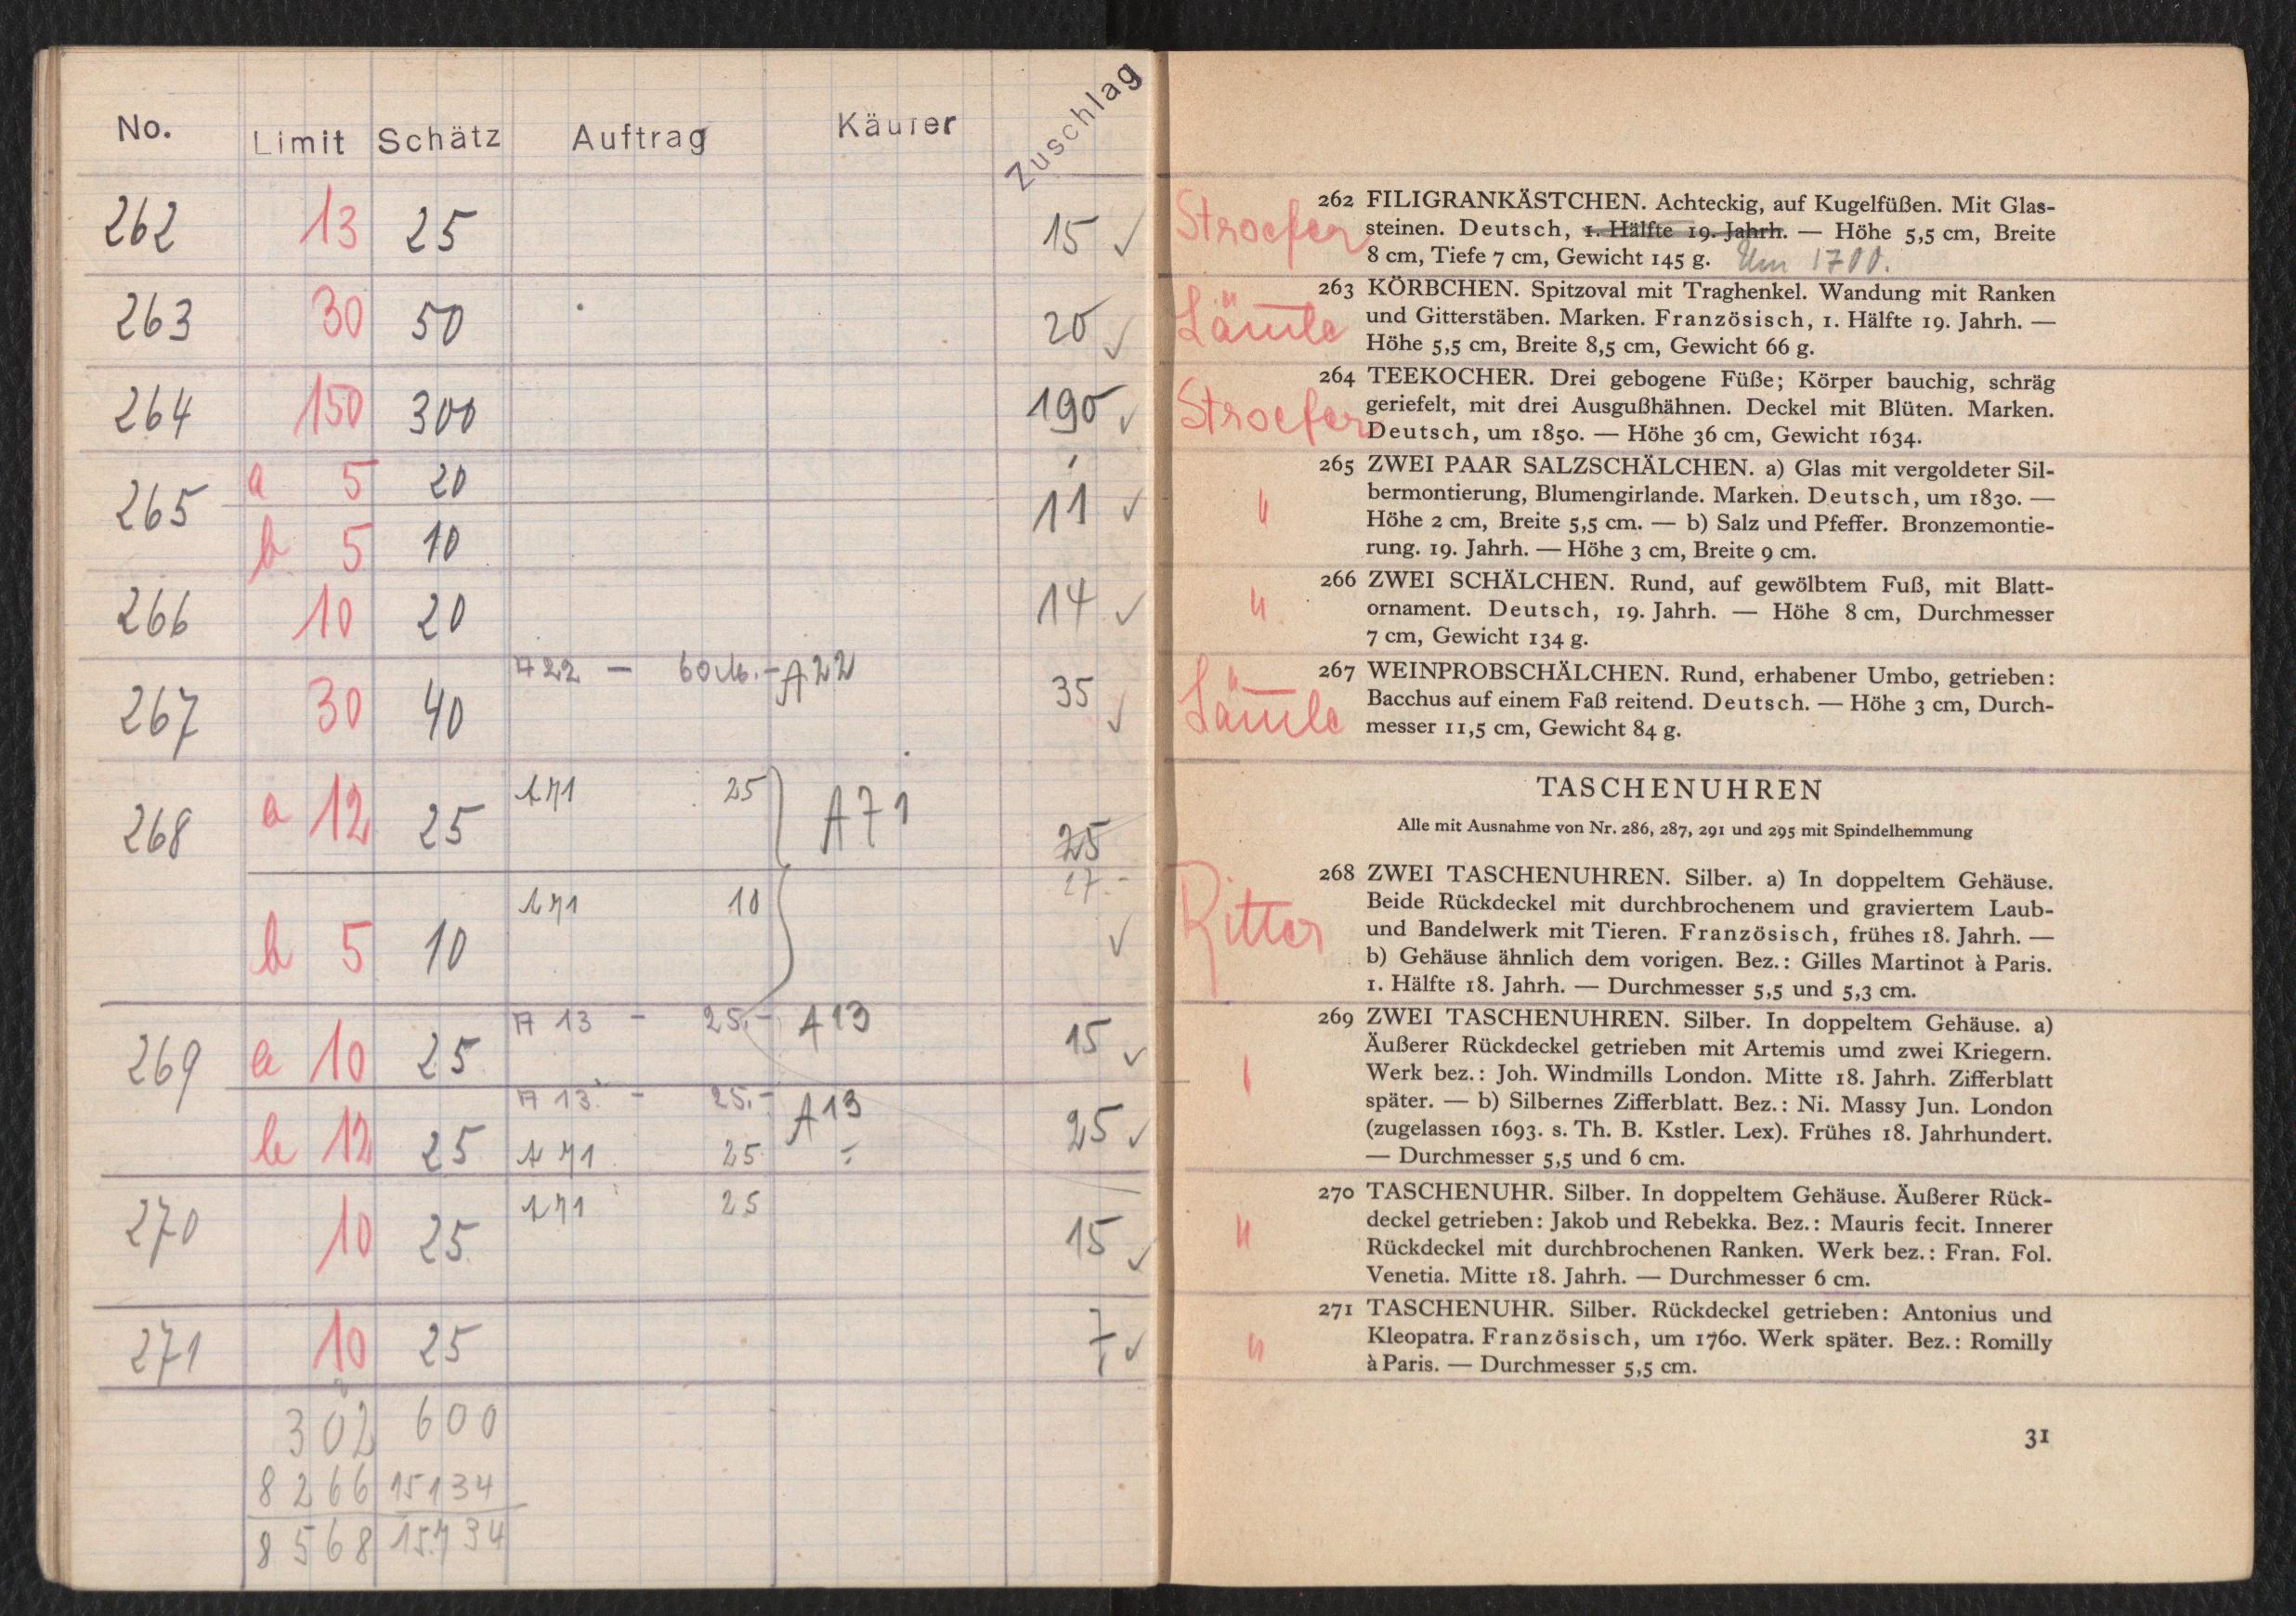 No. Limit Schätz Auftrag Käufer Zuschlag
262 13 25 15 ✓
263 30 50 20 ✓
264 150 300 190 ✓
265 a 5 20 11 ✓
b 5 10
266 10 20 14 ✓
267 30 40 A 22 – 60 M.- A22 35 ✓
268 a 12 25 A71 25 A71 25
27.-
b 5 10 A71 10 ✓
269 a 10 25 A 13 – 25.- A13 15 ✓
b 12 25 A 13. – 25.- A13 25 ✓
A 71 25 -
270 10 25 A71 25 15 ✓
271 10 25 7 ✓
302 600
8266 15134
8568 15734
Stroefer
262 FILIGRANKÄSTCHEN. Achteckig, auf Kugelfüßen. Mit Glas-
steinen. Deutsch, 1. Hälfte 19. Jahrh. — Höhe 5,5 cm, Breite
8 cm, Tiefe 7 cm, Gewicht 145 g. Um 1700.
Lämle
263 KÖRBCHEN. Spitzoval mit Traghenkel. Wandung mit Ranken
und Gitterstäben. Marken. Französisch, 1. Hälfte 19. Jahrh. —
Höhe 5,5 cm, Breite 8,5 cm, Gewicht 66 g.
Stroefer
264 TEEKOCHER. Drei gebogene Füße; Körper bauchig, schräg
geriefelt, mit drei Ausgußhähnen. Deckel mit Blüten. Marken.
Deutsch, um 1850. — Höhe 36 cm, Gewicht 1634.
"
265 ZWEI PAAR SALZSCHÄLCHEN. a) Glas mit vergoldeter Sil-
bermontierung, Blumengirlande. Marken. Deutsch, um 1830. —
Höhe 2 cm, Breite 5,5 cm. — b) Salz und Pfeffer. Bronzemontie-
rung. 19. Jahrh. — Höhe 3 cm, Breite 9 cm.
"
266 ZWEI SCHÄLCHEN. Rund, auf gewölbtem Fuß, mit Blatt-
ornament. Deutsch, 19. Jahrh. — Höhe 8 cm, Durchmesser
7 cm, Gewicht 134 g.
Lämle
267 WEINPROBSCHÄLCHEN. Rund, erhabener Umbo, getrieben:
Bacchus auf einem Faß reitend. Deutsch. — Höhe 3 cm, Durch-
messer 11,5 cm, Gewicht 84 g.
TASCHENUHREN
Alle mit Ausnahme von Nr. 286, 287, 291 und 295 mit Spindelhemmung
Ritter
268 ZWEI TASCHENUHREN. Silber. a) In doppeltem Gehäuse.
Beide Rückdeckel mit durchbrochenem und graviertem Laub-
und Bandelwerk mit Tieren. Französisch, frühes 18. Jahrh. —
b) Gehäuse ähnlich dem vorigen. Bez.: Gilles Martinot à Paris.
1. Hälfte 18. Jahrh. — Durchmesser 5,5 und 5,3 cm.
269 ZWEI TASCHENUHREN. Silber. In doppeltem Gehäuse. a)
Äußerer Rückdeckel getrieben mit Artemis umd zwei Kriegern.
Werk bez.: Joh. Windmills London. Mitte 18. Jahrh. Zifferblatt
später. — b) Silbernes Zifferblatt. Bez.: Ni. Massy Jun. London
(zugelassen 1693. s. Th. B. Kstler. Lex). Frühes 18. Jahrhundert.
— Durchmesser 5,5 und 6 cm.
"
270 TASCHENUHR. Silber. In doppeltem Gehäuse. Äußerer Rück-
deckel getrieben: Jakob und Rebekka. Bez.: Mauris fecit. Innerer
Rückdeckel mit durchbrochenen Ranken. Werk bez.: Fran. Fol.
Venetia. Mitte 18. Jahrh. — Durchmesser 6 cm.
"
271 TASCHENUHR. Silber. Rückdeckel getrieben: Antonius und
Kleopatra. Französisch, um 1760. Werk später. Bez.: Romilly
à Paris. — Durchmesser 5,5 cm.
31